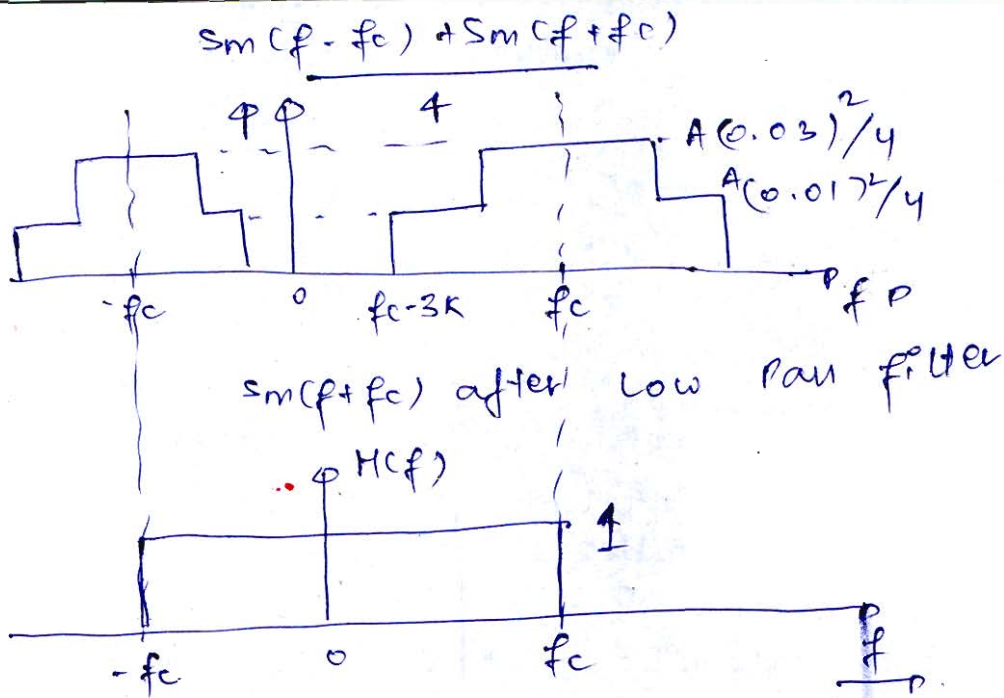 Sm (f - fc) + Sm (f + fc)
4
A(0.03)²/4
A(0.01)²/4
-fc 0 fc-3K fc f
Sm(f+fc) after Low Pass filter
H(f)
1
-fc 0 fc f